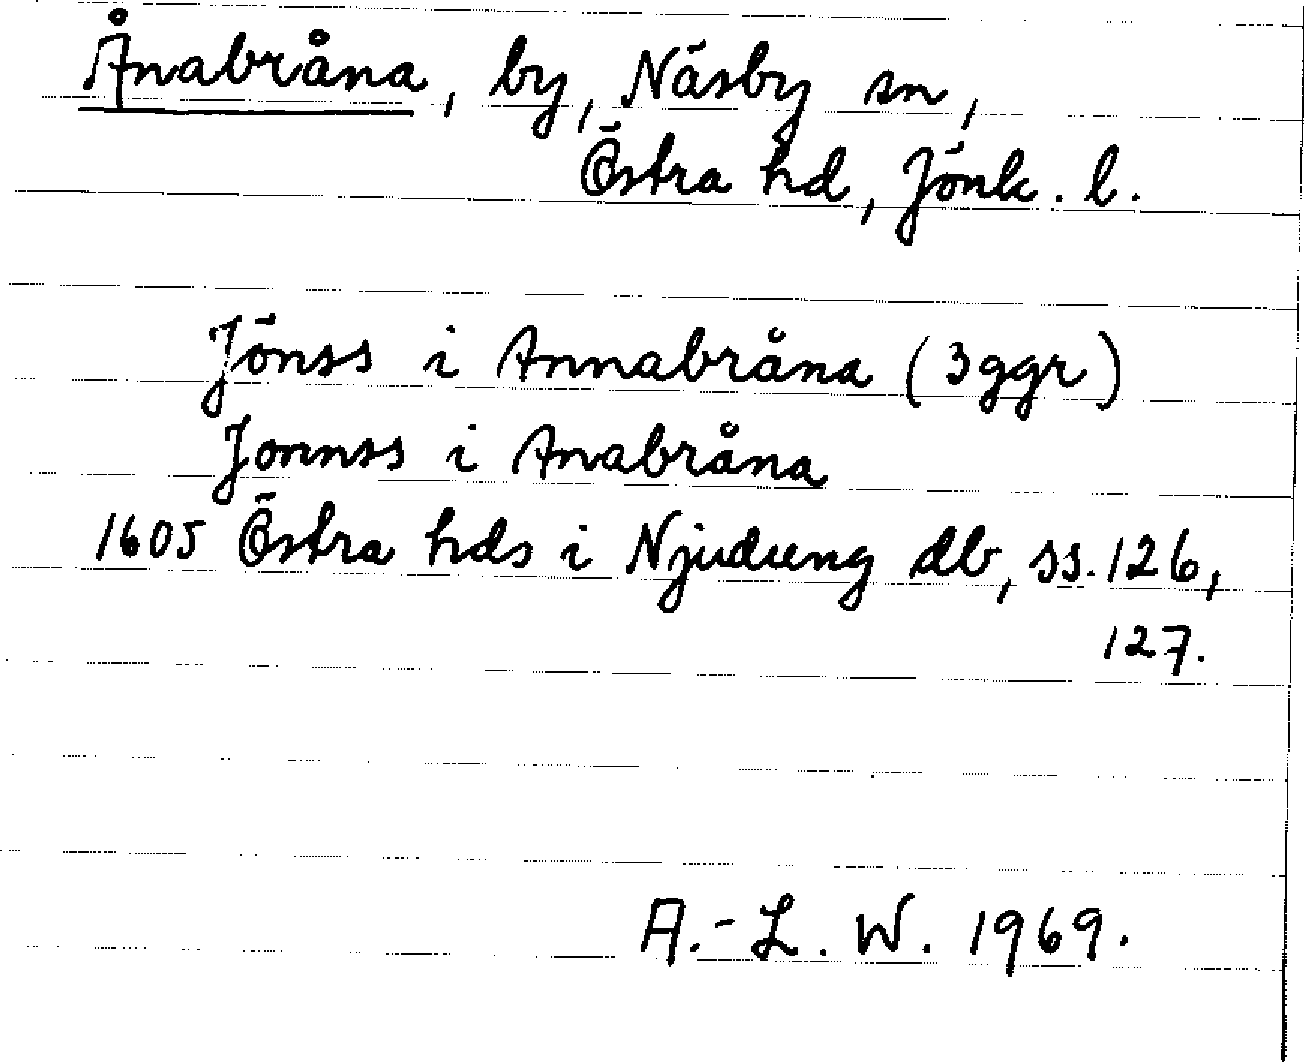 Ånabråna, by, Näsby sn,
Östra hd, Jönk. l.
Jönss i Annabråna (3ggr)
Jonnss i Anabråna
1605 Östra hds i Njudung db, ss. 126,
127.
A.-L. W. 1969.